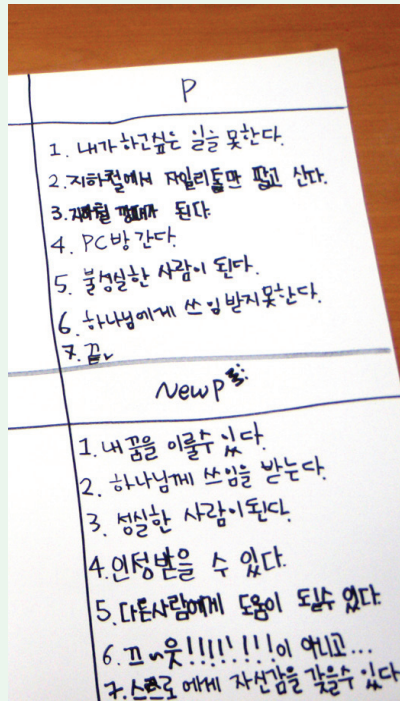 P
1. 내가 하고싶은 일을 못한다.
2. 지하철에서 자일리톨만 팔고 산다.
3. 지하철 깡패가 된다.
4. PC방 간다.
5. 불성실한 사람이 된다.
6. 하나님에게 쓰임 받지못한다.
7. 끝
New P
1. 내 꿈을 이룰수 있다.
2. 하나님께 쓰임을 받는다.
3. 성실한 사람이된다.
4. 인정받을 수 있다.
5. 다른사람에게 도움이 될수 있다.
6. 끄~읏!!!!!!!!이 아니고...
7. 스스로에게 자신감을 갖을수 있다